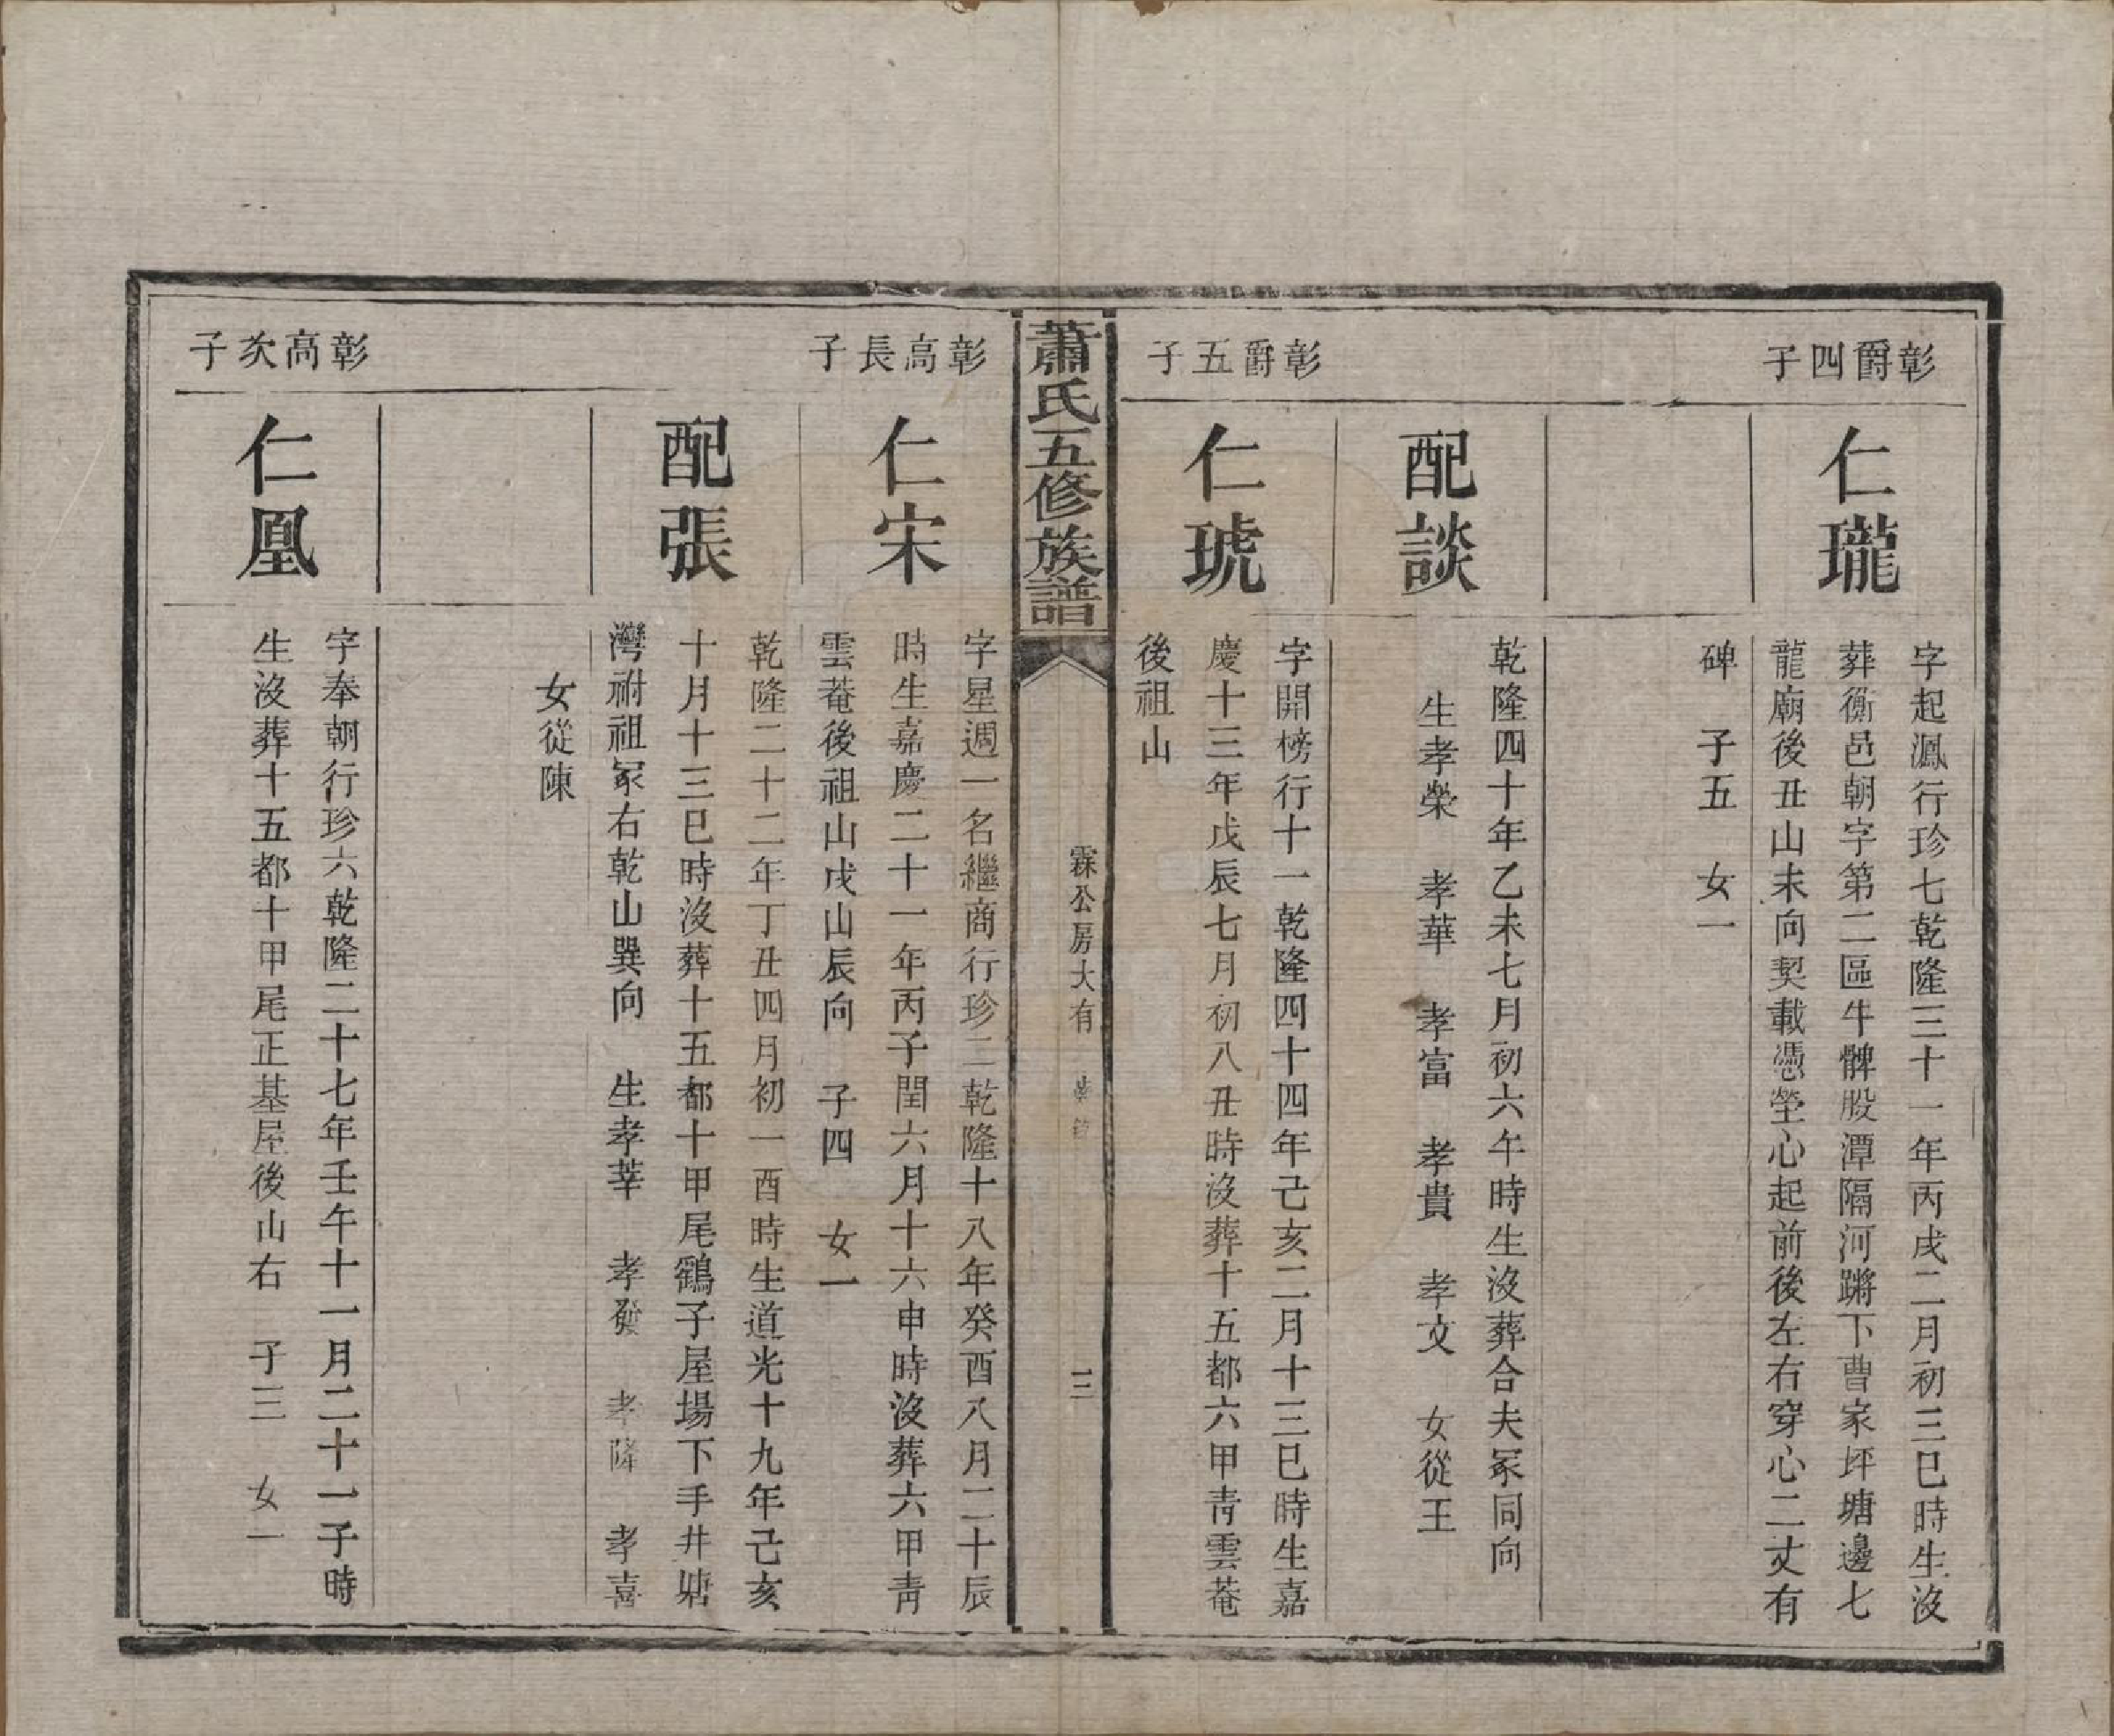 彰爵四子
仁瓏
字起鳳行珍七乾隆三十一年丙戌二月初三巳時生沒
葬衡邑朝字第二區牛髀股潭隔河蹡下曹家坪塘邊七
龍廟後丑山未向契載憑塋心起前後左右穿心二丈有
碑 子五 女一
配談
乾隆四十年乙未七月初六午時生沒葬合夫冢同向
生孝榮 孝華 孝富 孝貴 孝文 女從王
彰爵五子
仁琥
字開榜行十一乾隆四十四年己亥二月十三巳時生嘉
慶十三年戊辰七月初八丑時沒葬十五都六甲靑雲菴
後祖山
蕭氏五修族譜
霖公房大有
三
彰高長子
仁宋
字星週一名繼商行珍二乾隆十八年癸酉八月二十辰
時生嘉慶二十一年丙子閏六月十六申時沒葬六甲靑
雲菴後祖山戌山辰向 子四 女一
配張
乾隆二十二年丁丑四月初一酉時生道光十九年己亥
十月十三巳時沒葬十五都十甲尾鶴子屋場下手井塘
灣祔祖冢右乾山巽向 生孝莘 孝發 孝隆 孝喜
女從陳
彰高次子
仁凰
字奉朝行珍六乾隆二十七年壬午十一月二十一子時
生沒葬十五都十甲尾正基屋後山右 子三 女一